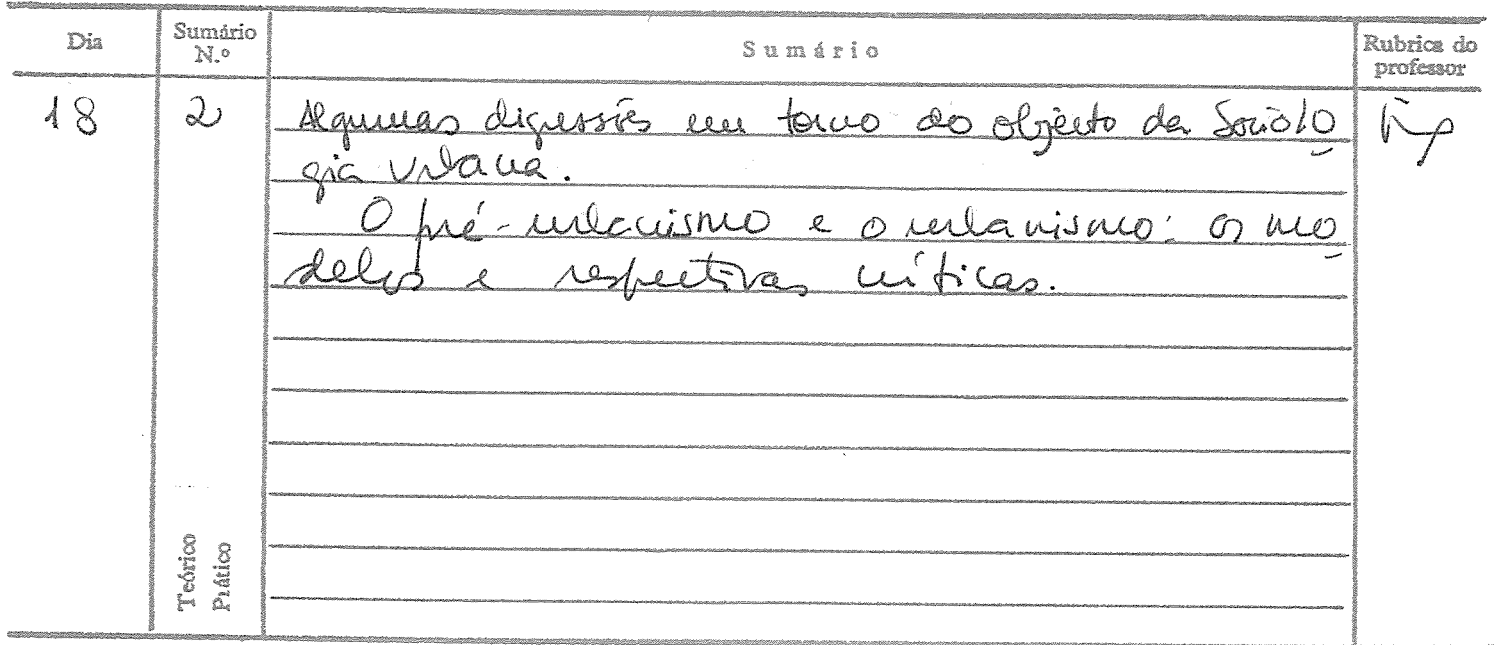 Dia Sumário N.º Sumário Rubrica do professor
18 2 Algumas digressões em torno do objecto da Sociolo
gia Urbana.
O pré-urbanismo e o urbanismo: os mo
delos e respectivas críticas.
Teórico
Prático